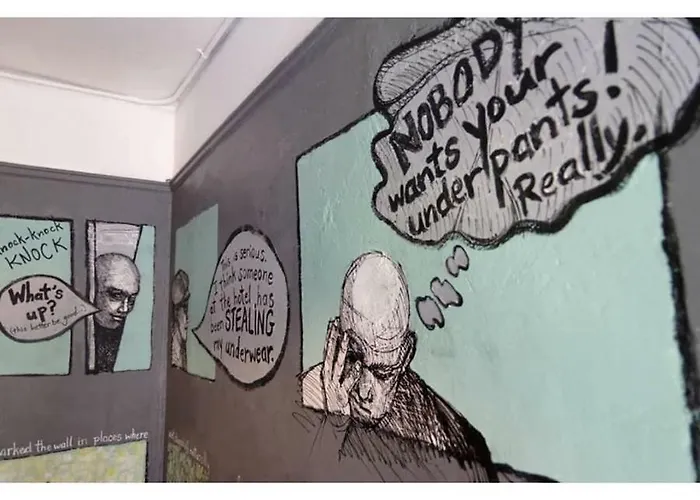 knock-knock
KNOCK
What's
up?
(this better be good...)
This is serious.
I think someone
at the hotel has
been STEALING
my underwear.
NOBODY
wants your
underpants!
Really.
arked the wall in places where